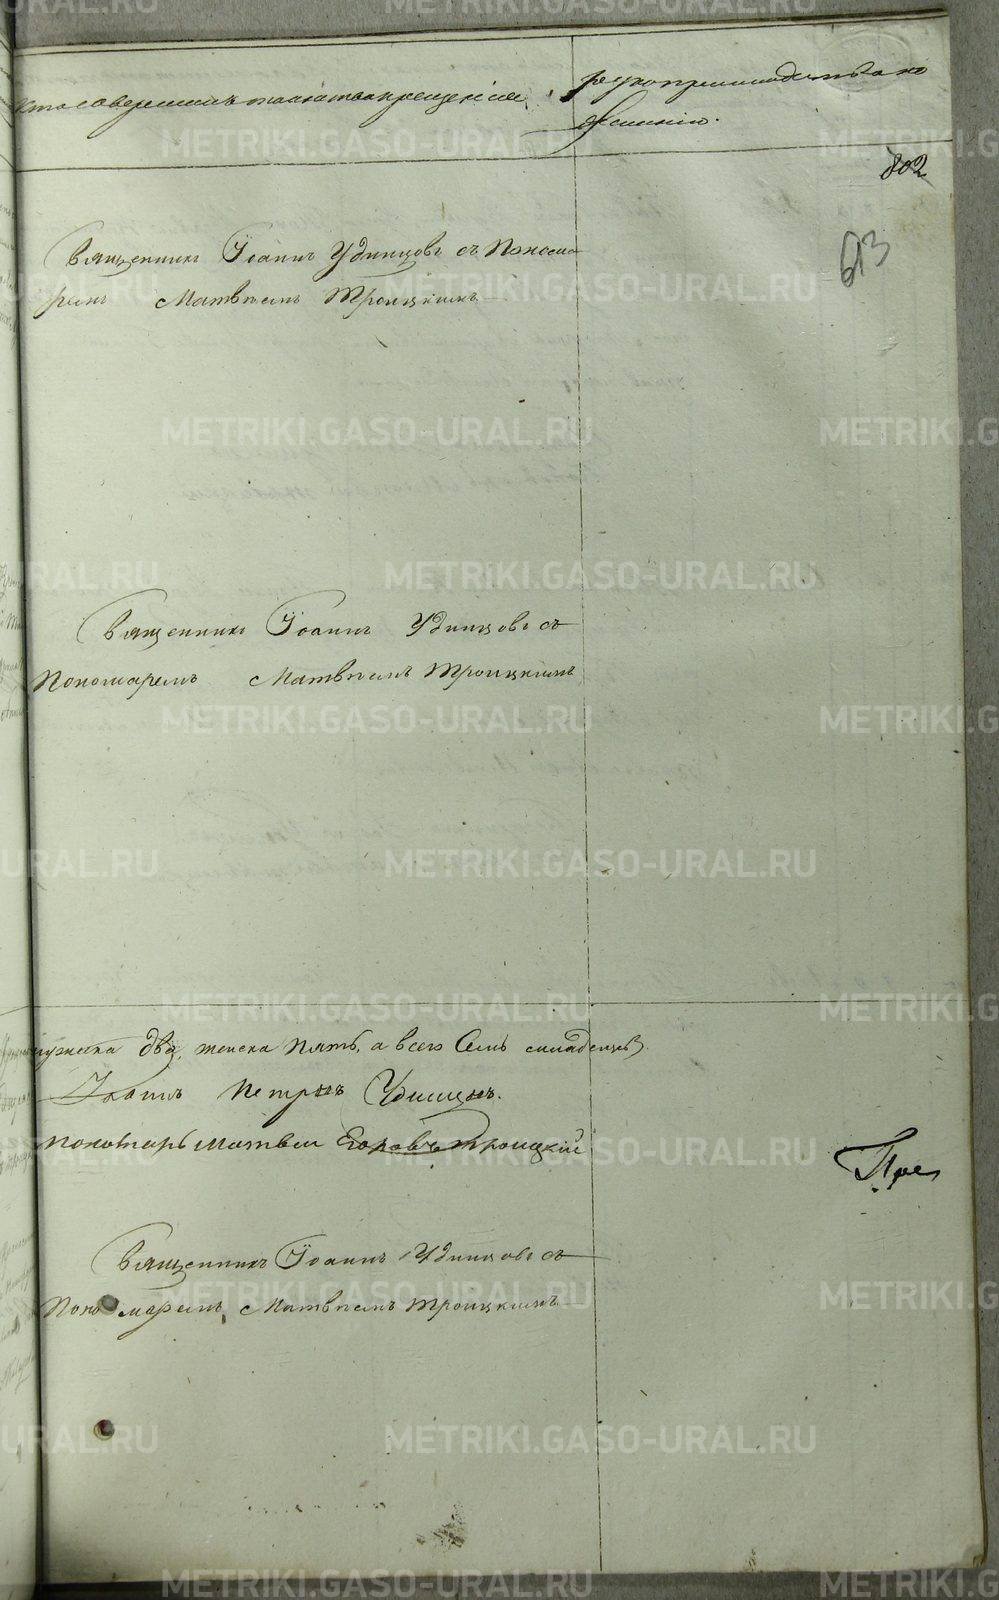 кто совершилъ таинство крещенія.
рукоприкладство по
желанію.
802
613
Священникъ Іоаннъ Удинцовъ съ Понома
ремъ Матвѣемъ Троицкимъ
Священникъ Іоаннъ Удинцовъ съ
Пономаремъ Матвѣемъ Троицкимъ
мужеска два, женска пять, а всего Семь младенцевъ.
Іоаннъ Петровъ Удинцовъ.
пономарь Матвей Егоровъ Троицкій
Пре
Священникъ Іоаннъ Удинцовъ съ
Поно маремъ Матвѣемъ Троицкимъ
METRIKI.GASO-URAL.RU